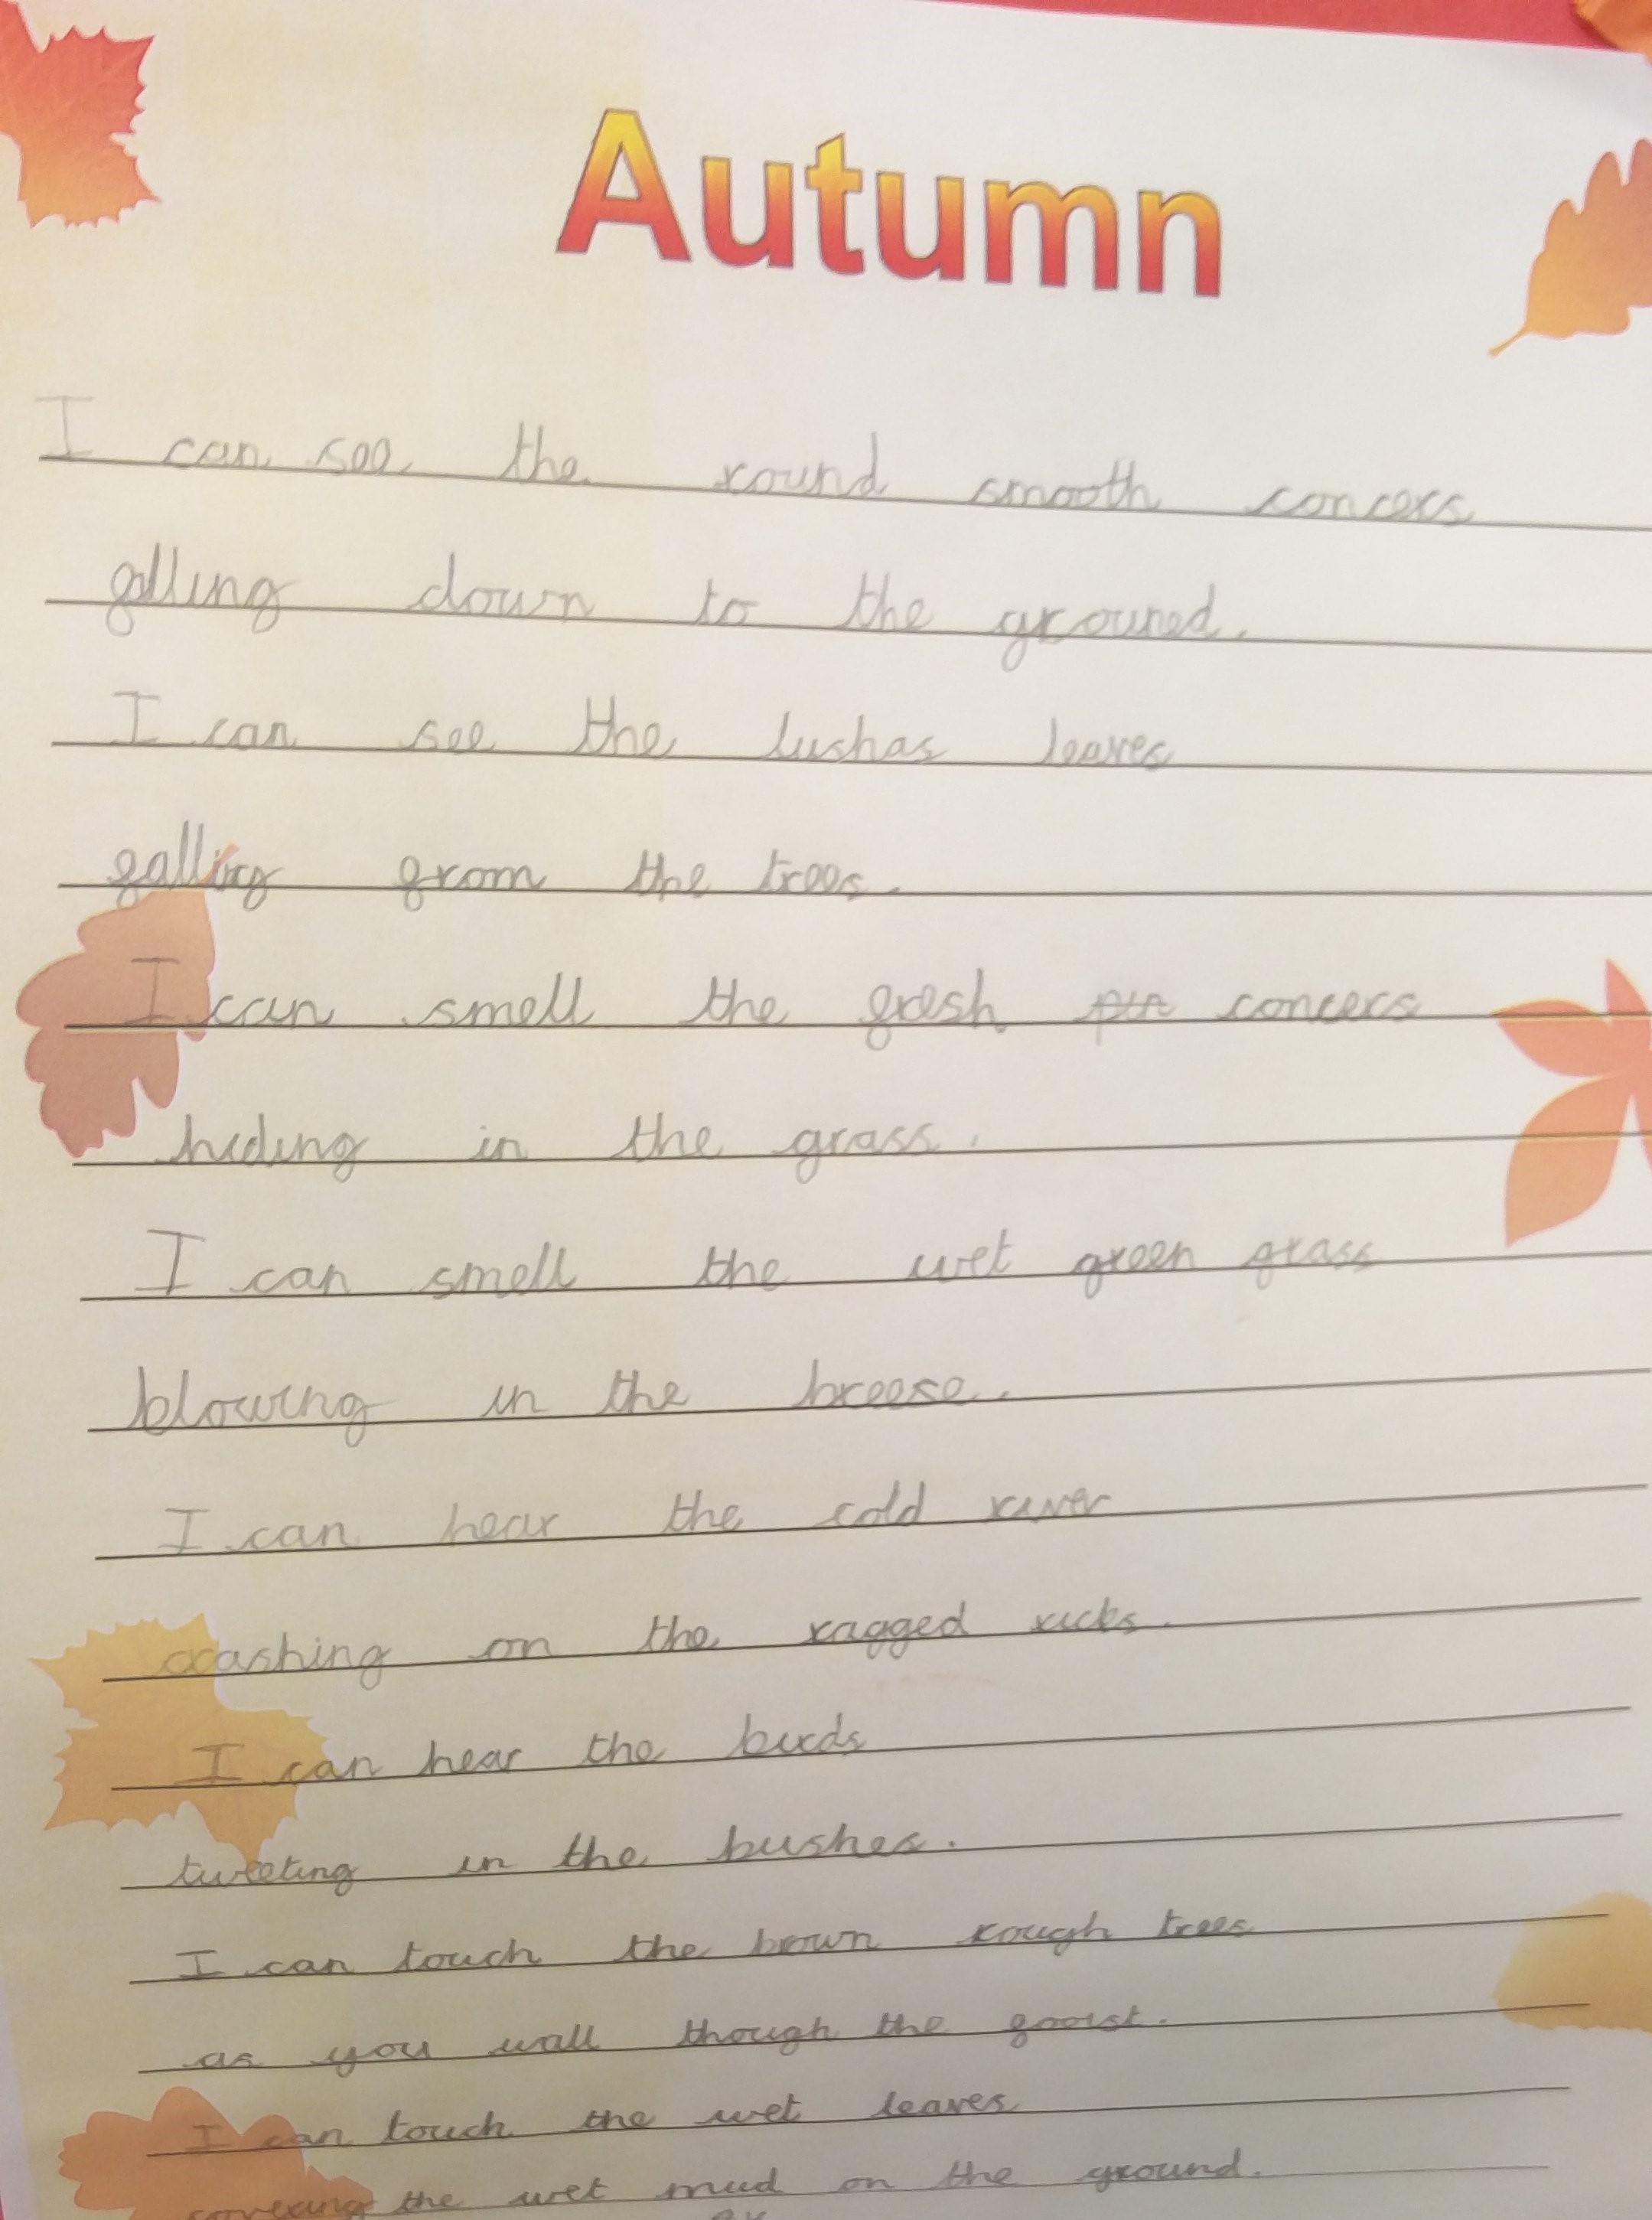 Autumn
I can see the round smooth concers
falling down to the ground.
I can see the lushas leaves
falling from the trees.
I can smell the fresh concers
hiding in the grass.
I can smell the wet green grass
blowing in the breese.
I can hear the cold river
crashing on the ragged ricks.
I can hear the birds
tweeting in the bushes.
I can touch the brown rough trees
as you wall though the foorist.
I can touch the wet leaves
covering the wet mud on the ground.